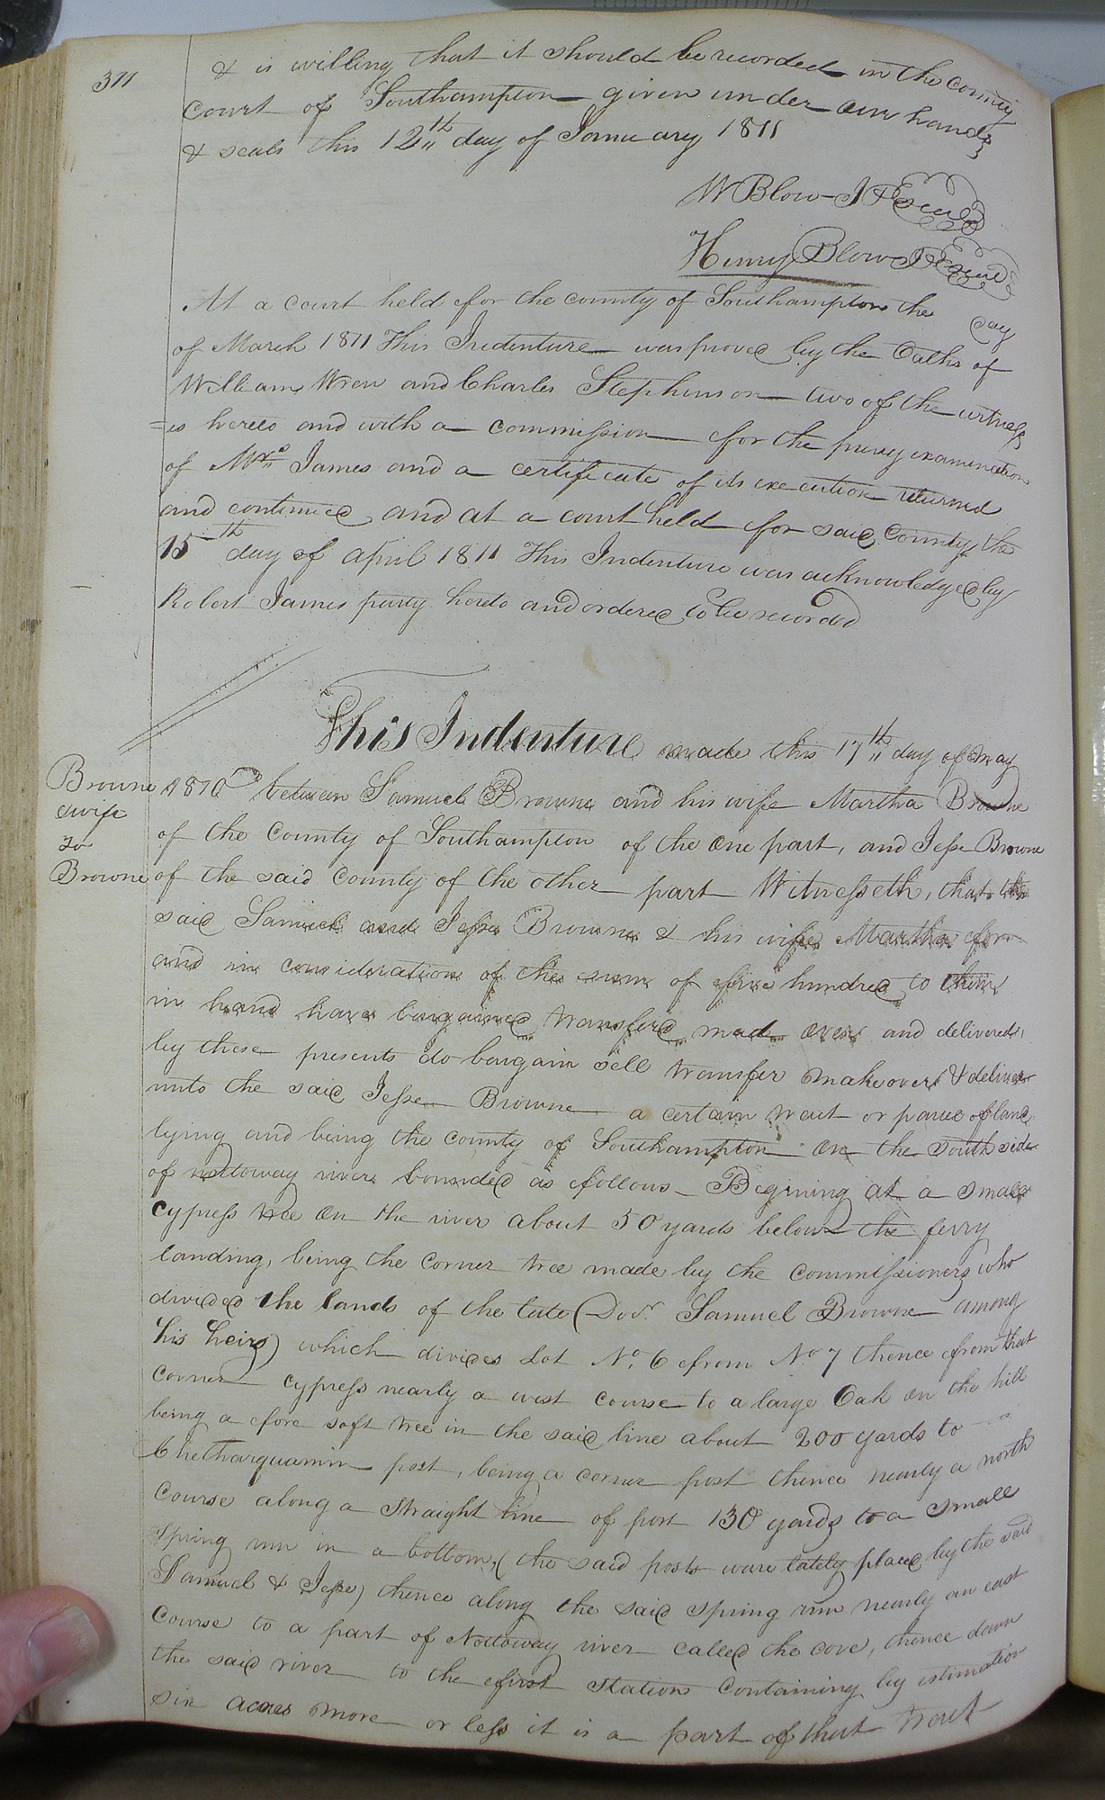 311
& is willing that it should be recorded in the county
Court of Southampton given under our hands
& seals this 12th day of January 1811
W Blow J P Seal
Henry Blow J P Seal
At a court held for the county of Southampton the day
of March 1811 This Indenture was proved by the Oaths of
William Wren and Charles Stephenson two of the witness
=es hereto and with a commission for the privy examination
of Mrs James and a certificate of its execution returned
and continued, and at a court held for said County the
15th day of April 1811 This Indenture was acknowledged by
Robert James party hereto and ordered to be recorded
This Indenture made this 17th day of May
Browne
& wife
to
Browne
1810 between Samuel Browne and his wife Martha Browne
of the County of Southampton of the one part, and Jesse Browne
of the said County of the other part Witnesseth, that the
said Samuel and Jesse Browne & his wife Martha for
and in consideration of the sum of five hundred to them
in hand have bargained transferd made over and delivered,
by these presents do bargain sell transfer make over & deliver
unto the said Jesse Browne a certain tract or parcel of land
lying and being the county of Southampton on the south side
of nottoway river bounded as follows - Begining at a small
cypress tree on the river about 50 yards below the ferry
landing, being the corner tree made by the commissioners who
divided the lands of the late (Docr. Samuel Browne among
his heirs) which divides Lot No. 6 from No 7 thence from that
corner cypress nearly a west course to a large Oak on the hill
being a fore soft tree in the said line about 200 yards to
post, being a corner post thence nearly a north
Course along a straight line of post 130 yards to a small
spring run in a bottom, (the said posts ware lately placed by the said
Samuel & Jesse) thence along the said spring run nearly an east
Course to a part of Nottoway river called the cove, thence down
the said river to the first station containing by estimation
six acres more or less it is a part of that tract